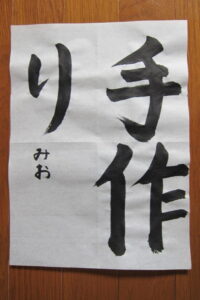 手作
り
みお